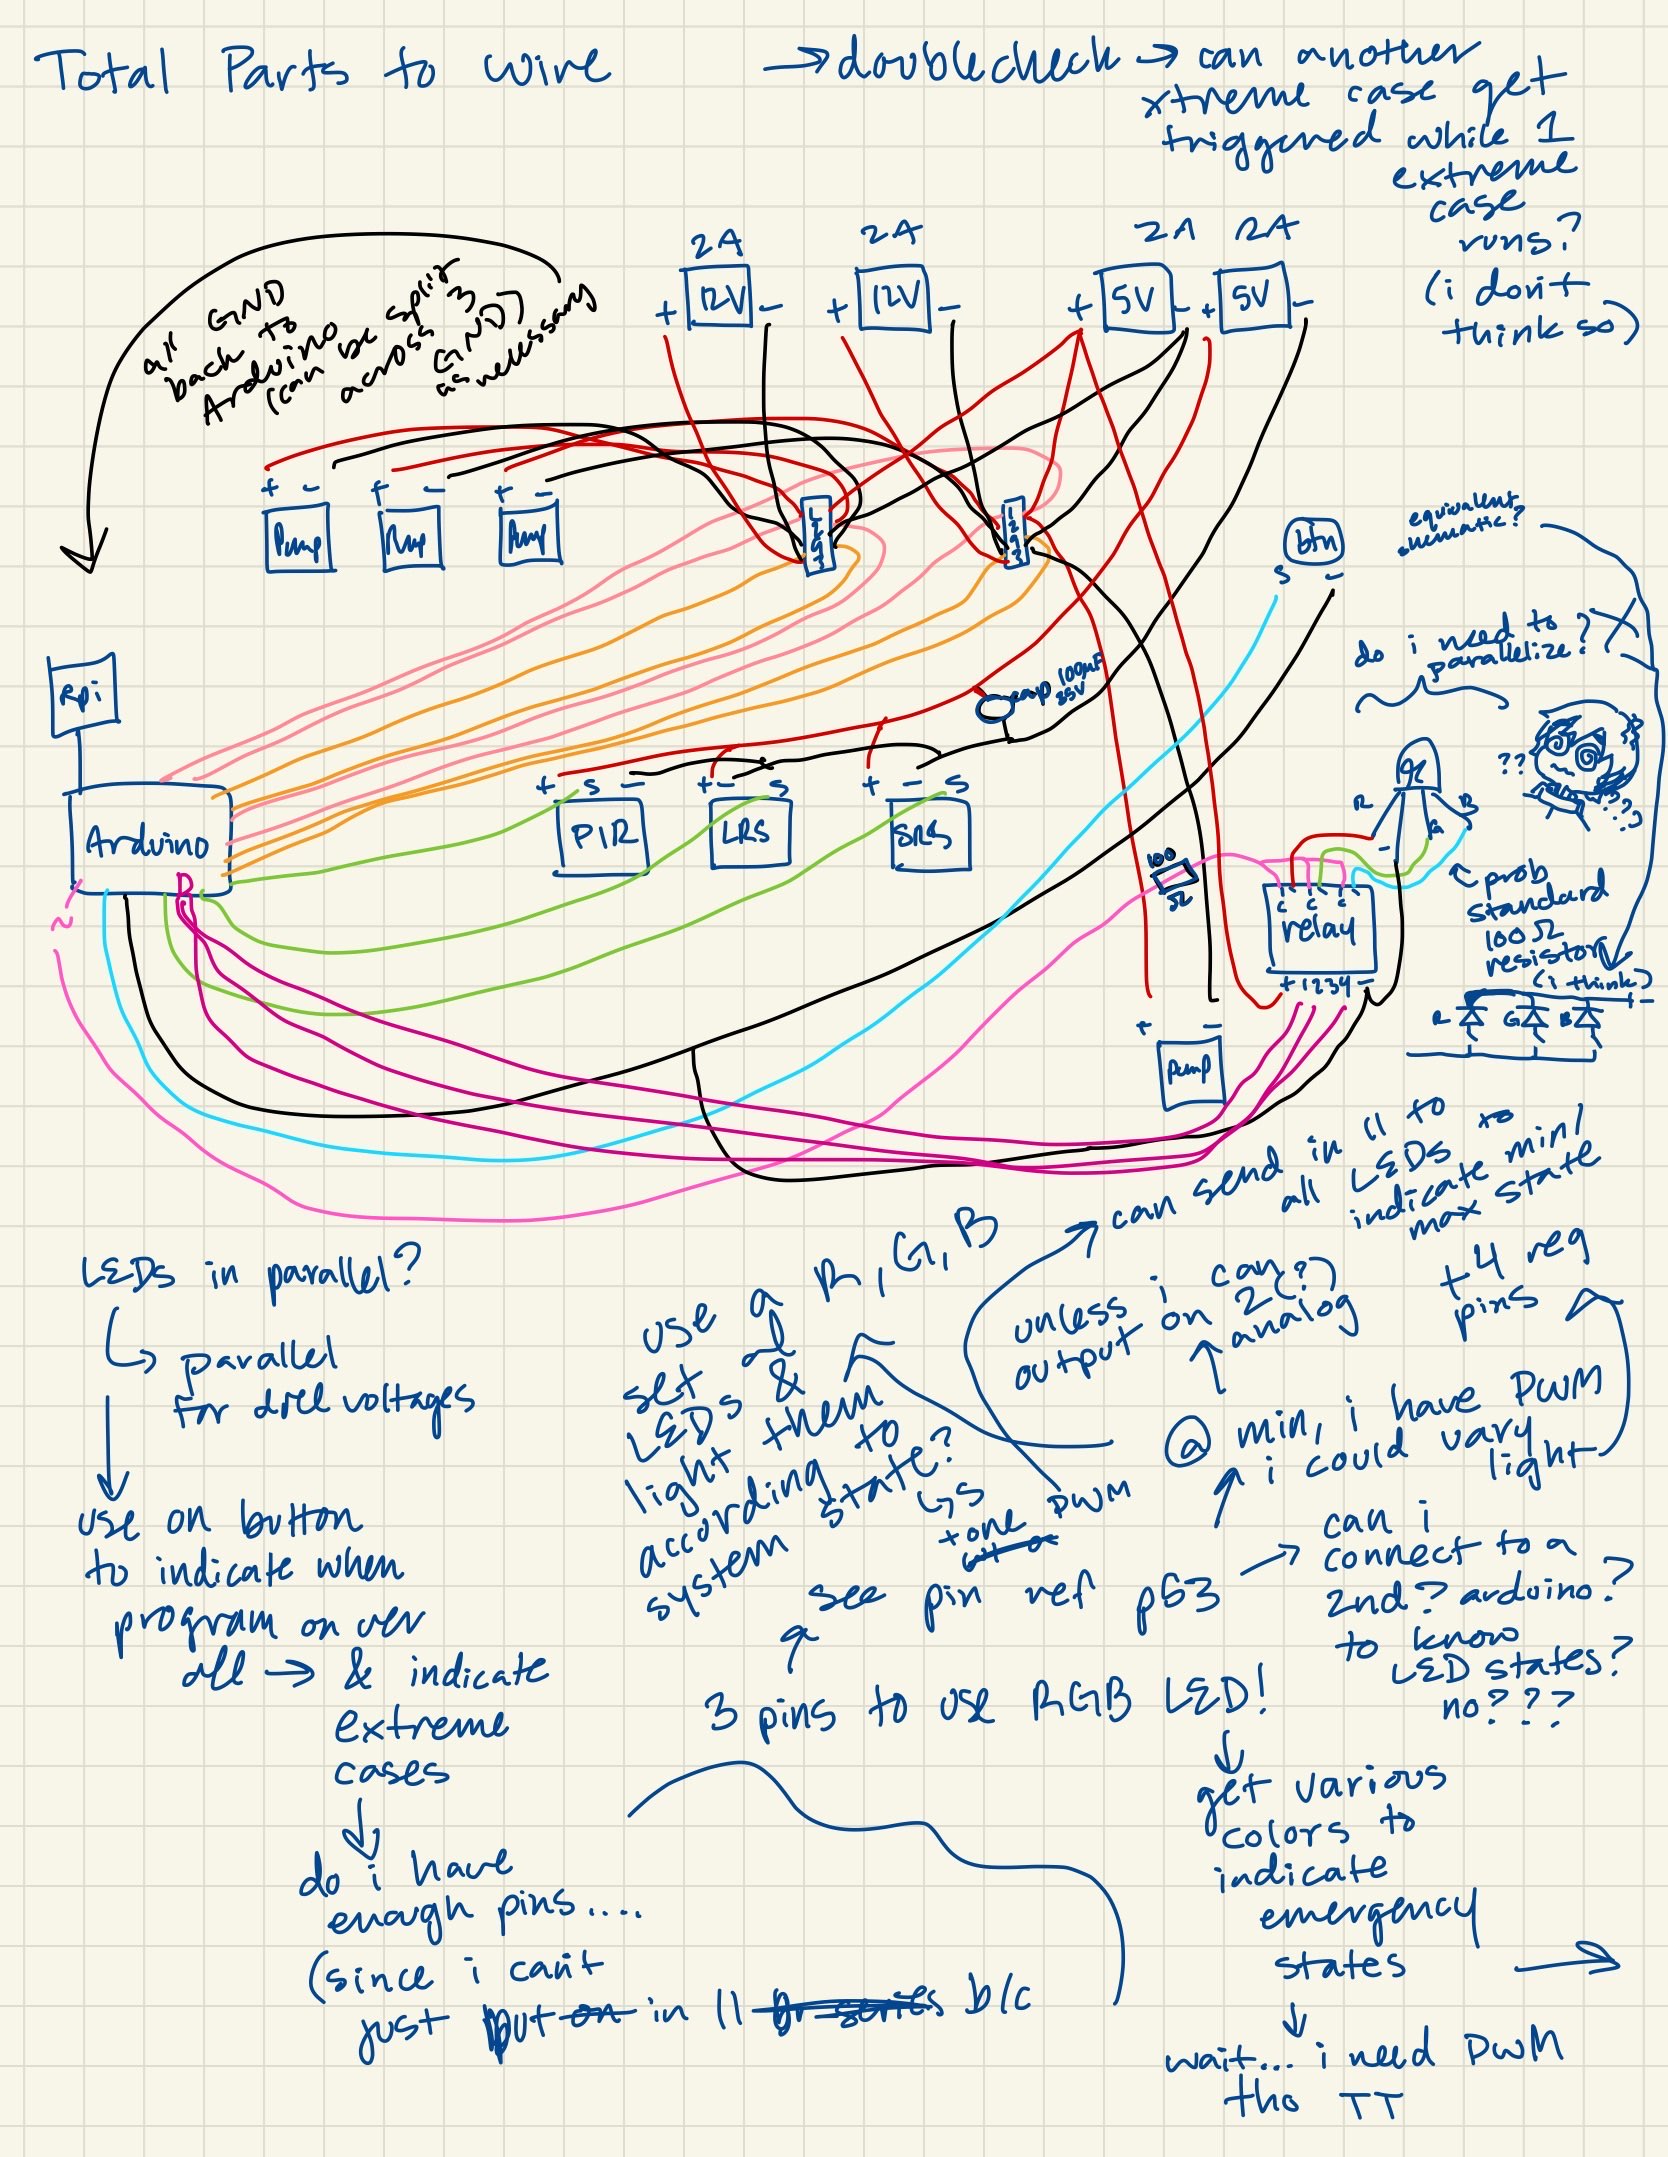 Total Parts to wire
→ doublecheck → can another
xtreme case get
triggered while 1
extreme
case
runs?
(i don't
think so)
2A
2A
2A
2A
12V
12V
5V
5V
+ -
+ -
+ -
+ -
all GND
back to
Arduino
(can be split
across 3
GND)
as necessary
+ -
+ -
+ -
Pump
Pump
Pump
L293
L293
btn
S -
equivalent
schematic?
do i need to
parallelize?
Rpi
cap 100µF
25V
Arduino
~
+ S -
+ - S
+ - S
PIR
LRS
SRS
R
-
G
B
??
???
100
Ω
C C C C
relay
+ 1 2 3 4 -
prob
standard
100Ω
resistor
(i think)
-
R G B
+ -
Pump
can send in 11 to
all LEDs to
indicate min/
max state
LEDs in parallel?
↳ parallel
for diff voltages
use on button
to indicate when
program on ver
off → & indicate
extreme
cases
do i have
enough pins....
(since i can't
just put on in 11 or series b/c
use a R, G, B
set of
LEDs &
light them
according to
system state?
↳ s
+one PWM
unless i can
output on 2(?)
analog
+4 reg
pins
@ min, i have PWM
i could vary
light
see pin ref p63
→ can i
connect to a
2nd? arduino?
to know
LED states?
no???
3 pins to use RGB LED!
get various
colors to
indicate
emergency
states →
wait... i need PWM
tho TT